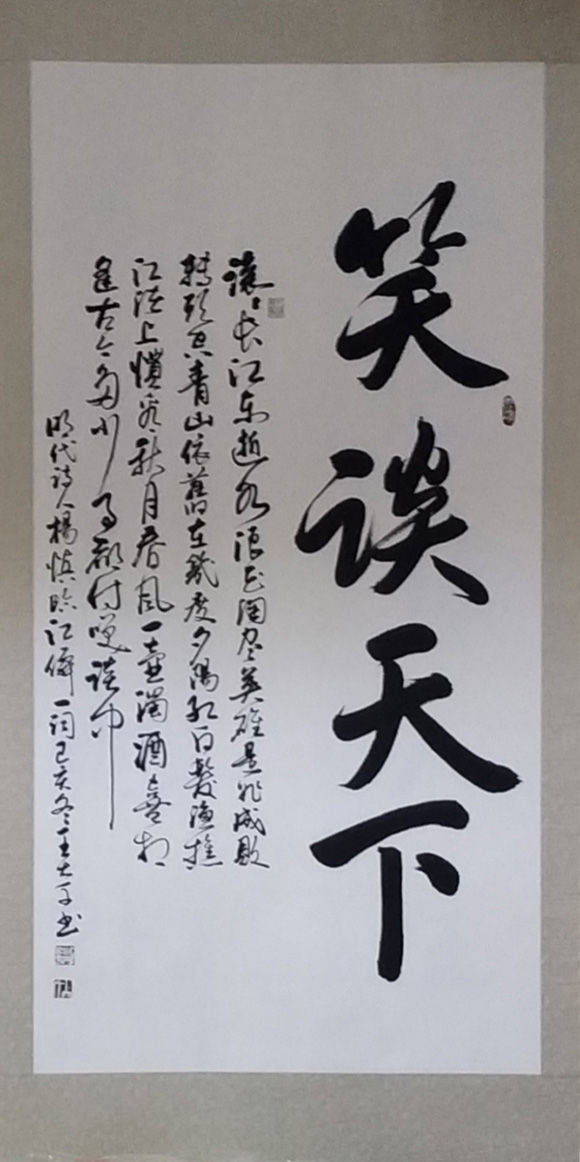 笑谈天下
滚滚长江东逝水浪花淘尽英雄是非成败
转头空青山依舊在幾度夕陽红白髮渔樵
江渚上惯看秋月春风一壶濁酒喜相
逢古今多少事都付咲谈中
明代诗人楊慎临江仙一词己亥冬王大子书